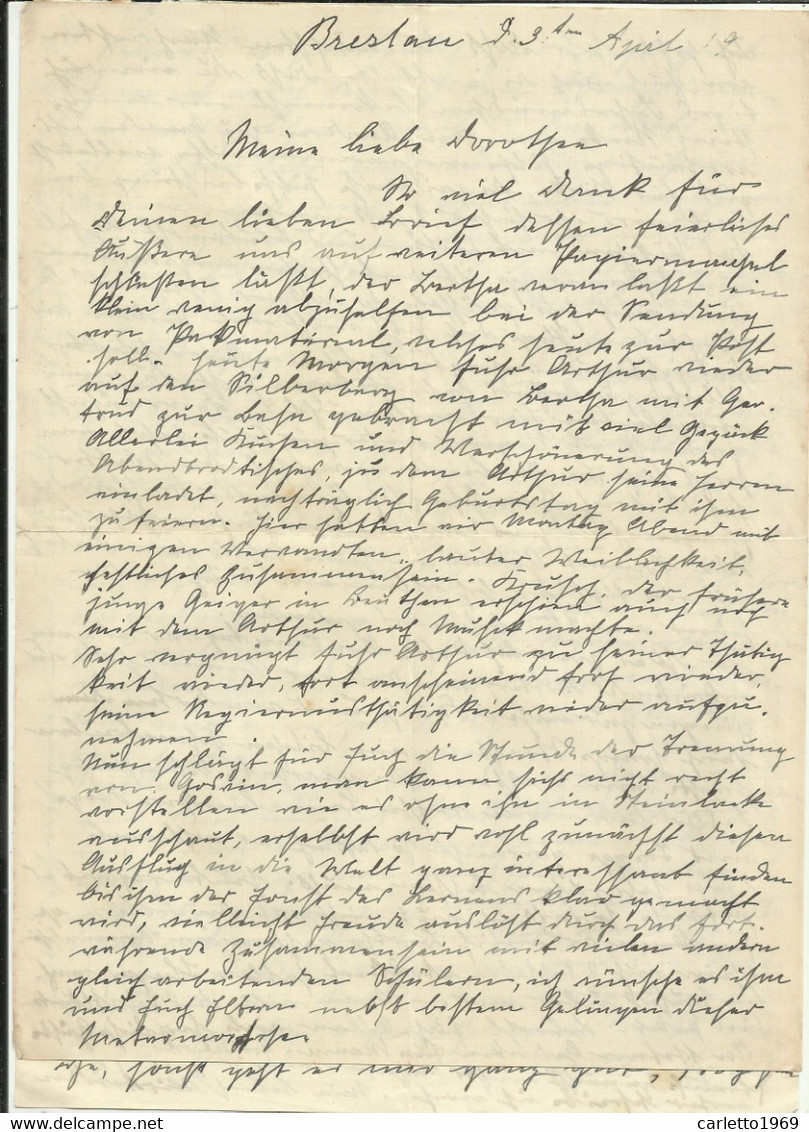 Breslau d. 3ten April 19
Meine liebe Dorothee
So viel Dank für
Deinen lieben Brief dessen feierliches
Äußere uns auf weiteren Papiermangel
schließen läßt, der Bertha veranlaßt ein
klein wenig abzuhelfen bei der Sendung
von Pakmaterial, welches heute zur Post
soll. Heute Morgen fuhr Arthur wieder
auf den Silberberg von Bertha mit Ger-
trud zur Bahn gebracht mit viel Gepäck
Allerlei Kuchen und Verschönerung des
Abendbrodtisches, zu dem Arthur seine Herren
einladet, nachträglich Geburtstag mit ihm
zu feiern. Hier hatten wir Montag Abend mit
einigen Verwandten, lauter Weiblichkeit,
festliches Zusammensein. Krusch, der frühere
junge Geiger in Beuthen erschien auch noch
mit dem Arthur noch Musik machte.
Sehr vergnügt fuhr Arthur zu seiner Thätig
keit wieder, dort anscheinend froh wieder,
seine Regierungsthätigkeit wieder aufzu-
nehmen.
Nun schlägt für Euch die Stunde der Trennung
von Goswin, man kann sichs nicht recht
vorstellen wie es ohne ihn in Steinlacke
ausschaut, er selbst wird wohl zunächst diesen
Ausflug in die Welt ganz interessant finden
bis ihm der Ernst des Lernens klar gemacht
wird, vielleicht Freude auslöst durch das fort-
währende Zusammensein mit vielen andern
gleich arbeitenden Schülern, ich wünsche es ihm
und Euch Eltern nebst bestem Gelingen dieser
Metamorphose.
sonst geht es mir ganz gut,
carletto1969